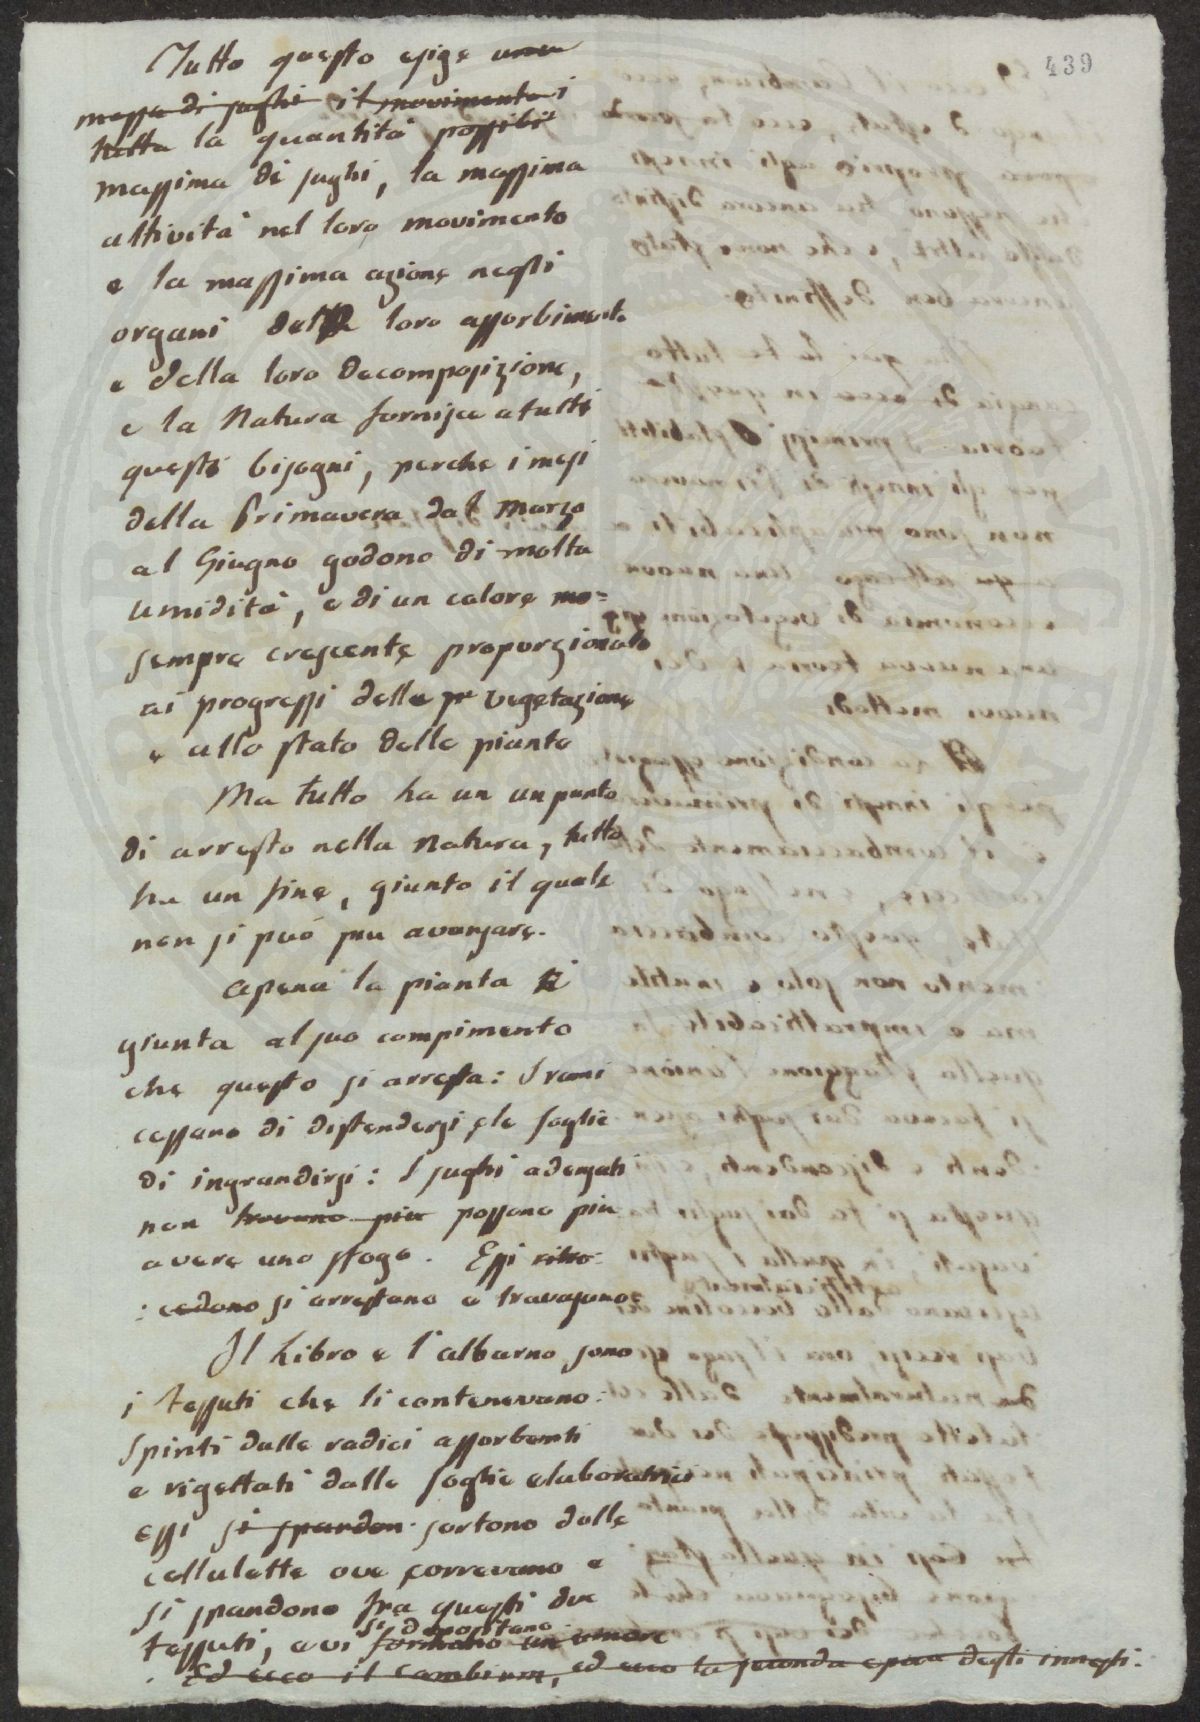 439
Tutto questo esige una
massa di sughi il movimento i
tutta la quantità possibi
massima di sughi, la massima
attività nel loro movimento
e la massima azione negli
organi del loro assorbimento
e della loro decomposizione,
e la Natura fornisce a tutti
questi bisogni, perche i mesi
della Primavera dal Marzo
al Giugno godono di molta
umidità, e di un calore mo=
sempre crescente proporzionato
ai progressi delle pr vegetazione
e allo stato delle piante
Ma tutto ha un un punto
di arresto nella Natura, tutto
ha un fine, giunto il quale
non si può piu avanzare.
Apena la pianta è
giunta al suo compimento
che questo si arresta: I rami
cessano di distendersi e le foglie
di ingrandirsi: I sughi adensati
non trovano piu possono piu
avere uno sfogo. Essi retro-
cedono si arrestano e travasano
Il Libro e l'alburno sono
i tessuti che li contenevano:
Spinti dalle radici assorbenti
e rigettati dalle foglie elaboratrici
essi si spandon sortono dalle
cellulette ove correvano e
si spandono fra questi due
si depositano
tessuti, e vi formano un umore
Ed ecco il Cambium, ed ecco la seconda epoca degli innesti.